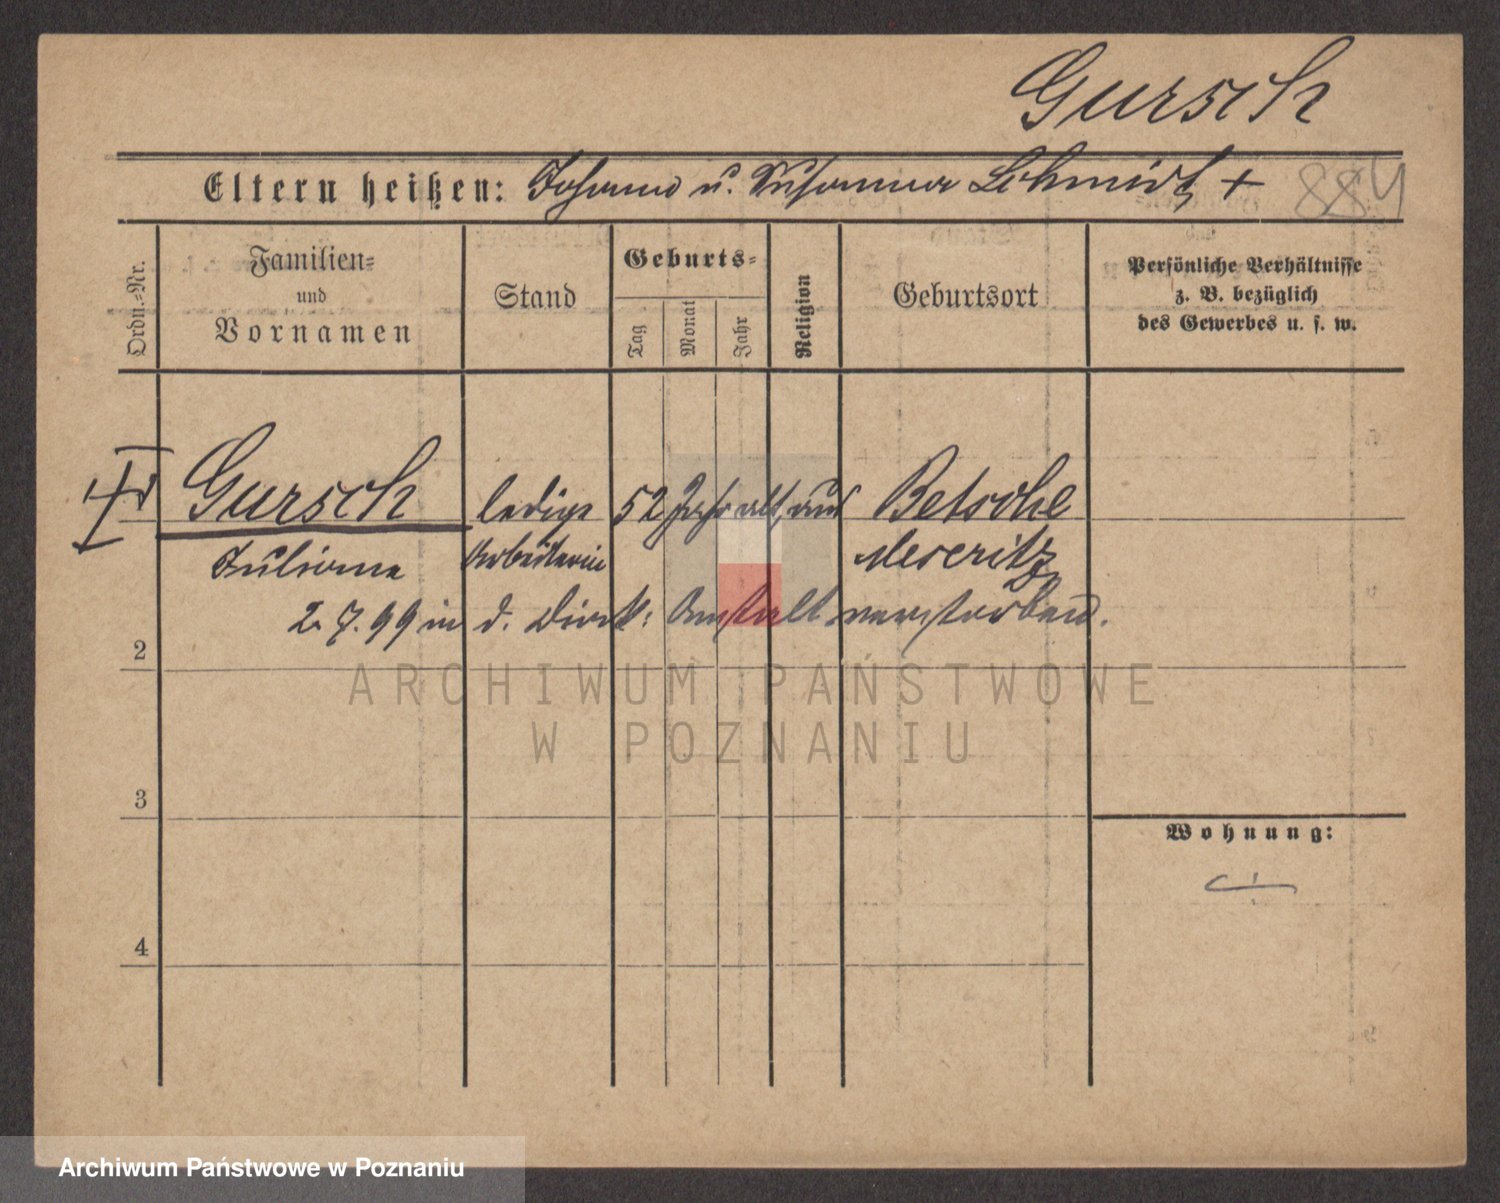 Gursch
Eltern heißen: Johann u. Susanna Schmidt +
884
Ordn.-Nr.
Familien-
und
Vornamen
Stand
Geburts-
Tag
Monat
Jahr
Religion
Geburtsort
Persönliche Verhältnisse
z. B. bezüglich
des Gewerbes u. s. w.
Gursch ledige 52 Jahr alt, aus Betsche
Juliana Arbeiterin Meseritz
2.7.99 in d. Diak: Anstalt verstorben.
2
ARCHIWUM PAŃSTWOWE
W POZNANIU
3
Wohnung:
4
Archiwum Państwowe w Poznaniu